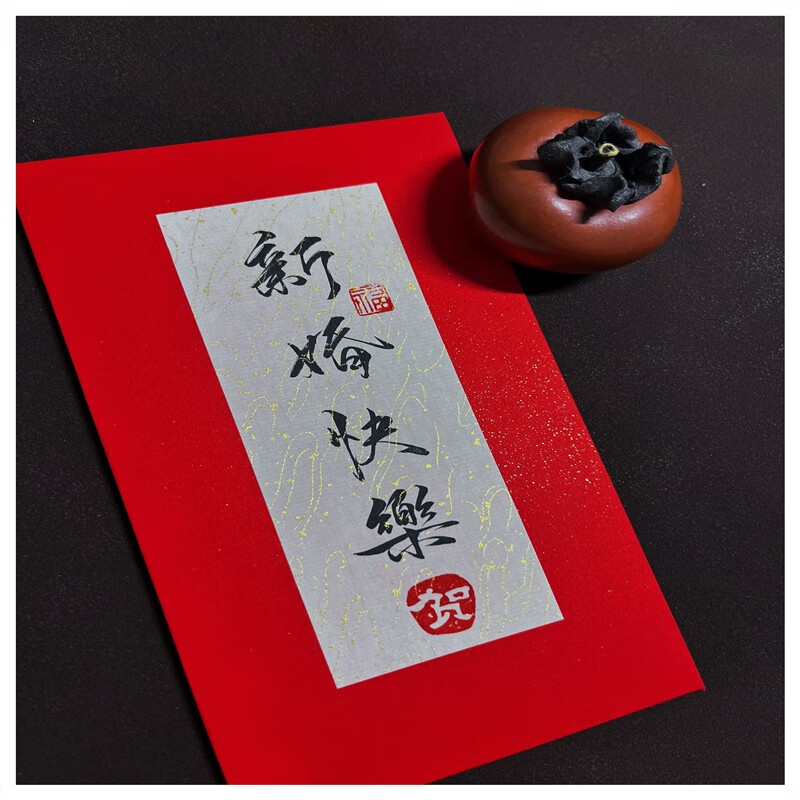 新婚快樂
福
贺